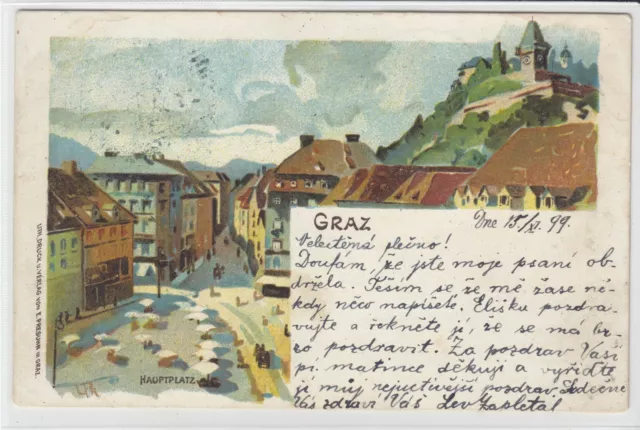 GRAZ
Dne 15/XI. 99.
Velectěná slečno!
Doufám, že jste moje psaní ob-
držela. Těším se že mě zase ně-
kdy něco napíšete. Elišku pozdra-
vujte a řekněte jí, že se má br-
zo pozdravit. Za pozdrav Vaší
pí. matince děkuji a vyřiďte
jí můj nejuctivější pozdrav. Srdečně
Vás zdraví Váš Lev Zapletal
HAUPTPLATZ
LITH. DRUCK u. VERLAG von E. PRESUHN in GRAZ.